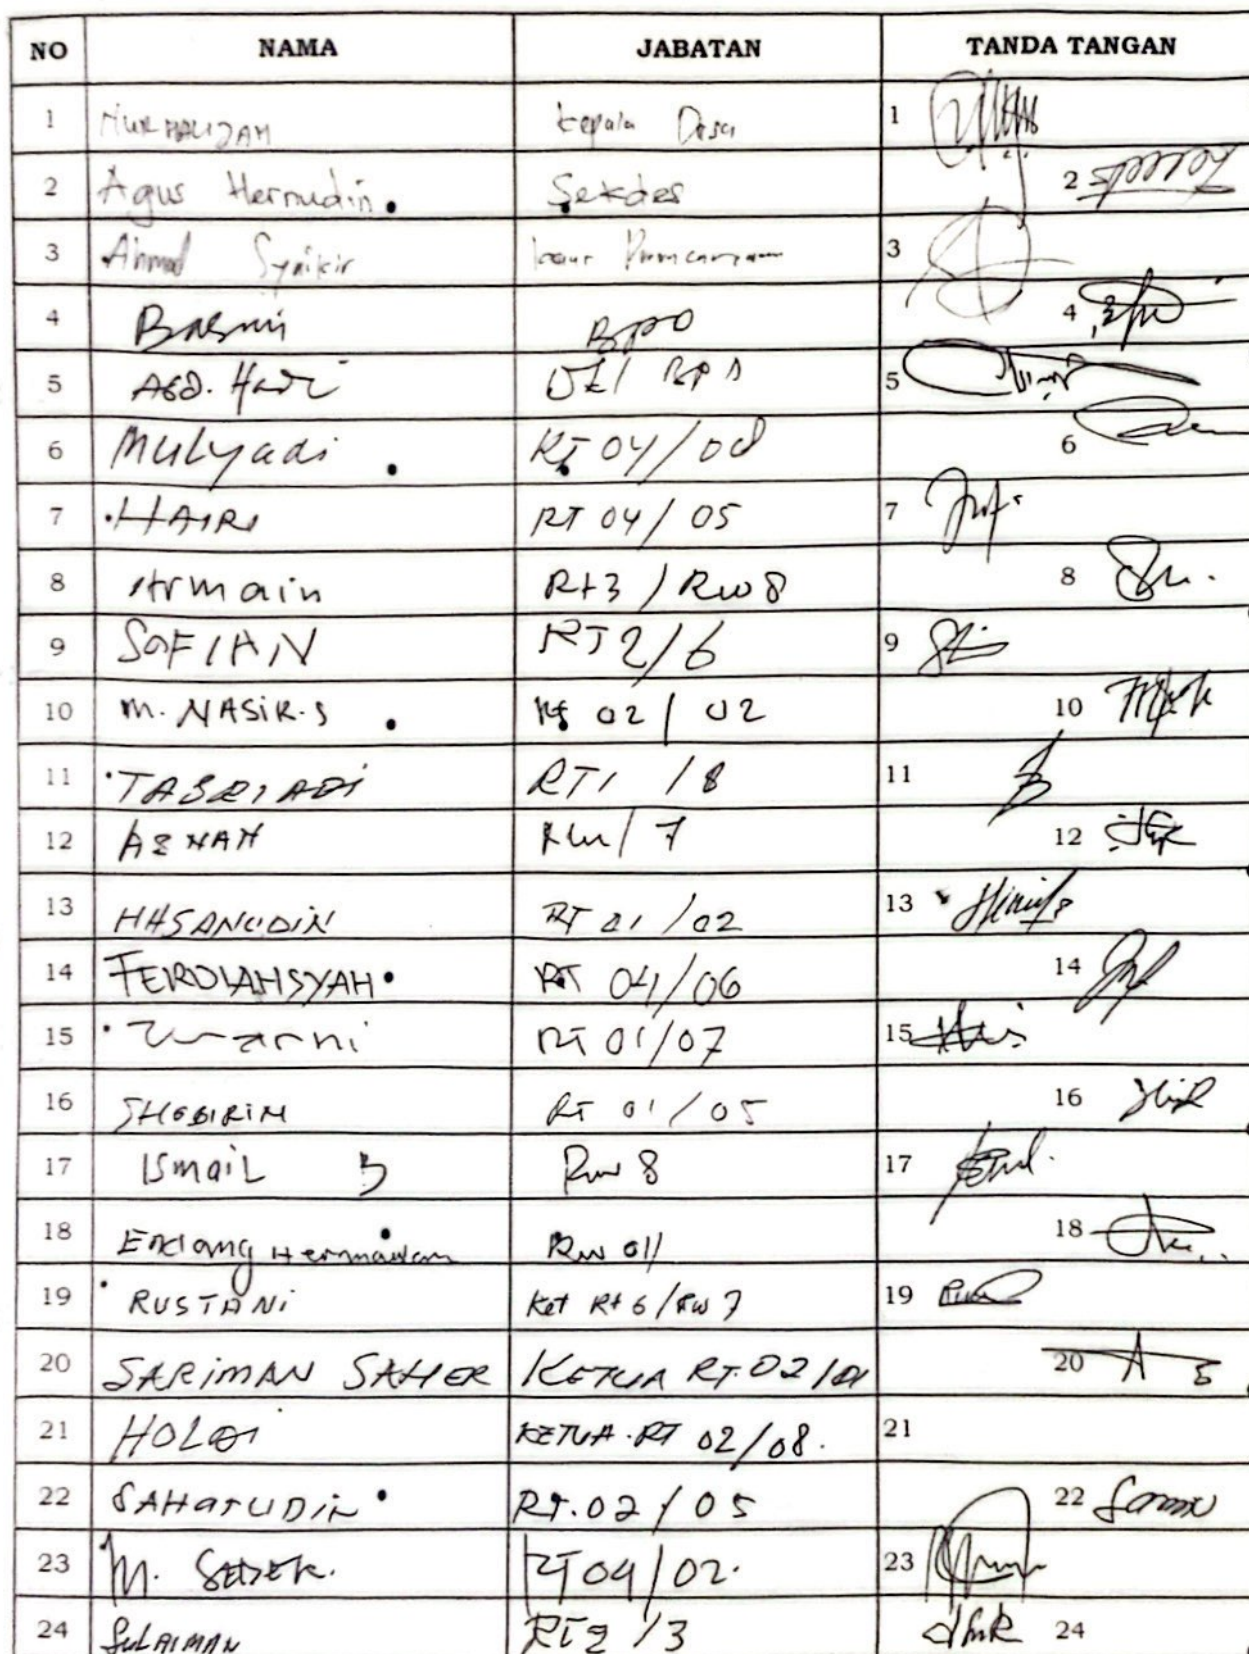 NO NAMA JABATAN TANDA TANGAN
1 NURHALIJAH Kepala Desa 1
2 Agus Hernudin Sekdes 2
3 Ahmad Syaikir kaur Perencanaan 3
4 Basmi BPD 4
5 ABD. Hadi BPD 5
6 Mulyadi RT 04/08 6
7 HAIRI RT 04/05 7
8 Armain Rt3/Rw8 8
9 SOFIAN RT2/6 9
10 M. NASIR.S Rt 02/02 10
11 TASRIADI RT1/8 11
12 ASNAH RW/7 12
13 HASANUDIN RT 01/02 13
14 FERDIANSYAH RT 04/06 14
15 RT 01/07 15
16 SHOBIRIN RT 01/05 16
17 ISmaiL Rw 8 17
18 Endang Hermawan Rw 011 18
19 RUSTANi Ket Rt 6/Rw 7 19
20 SARIMAN SAHER KETUA RT.02/01 20
21 KETUA.RT 02/08. 21
22 SAHARUDIN RT.02/05 22
23 M. RT04/02. 23
24 SULAIMAN RT2/3 24